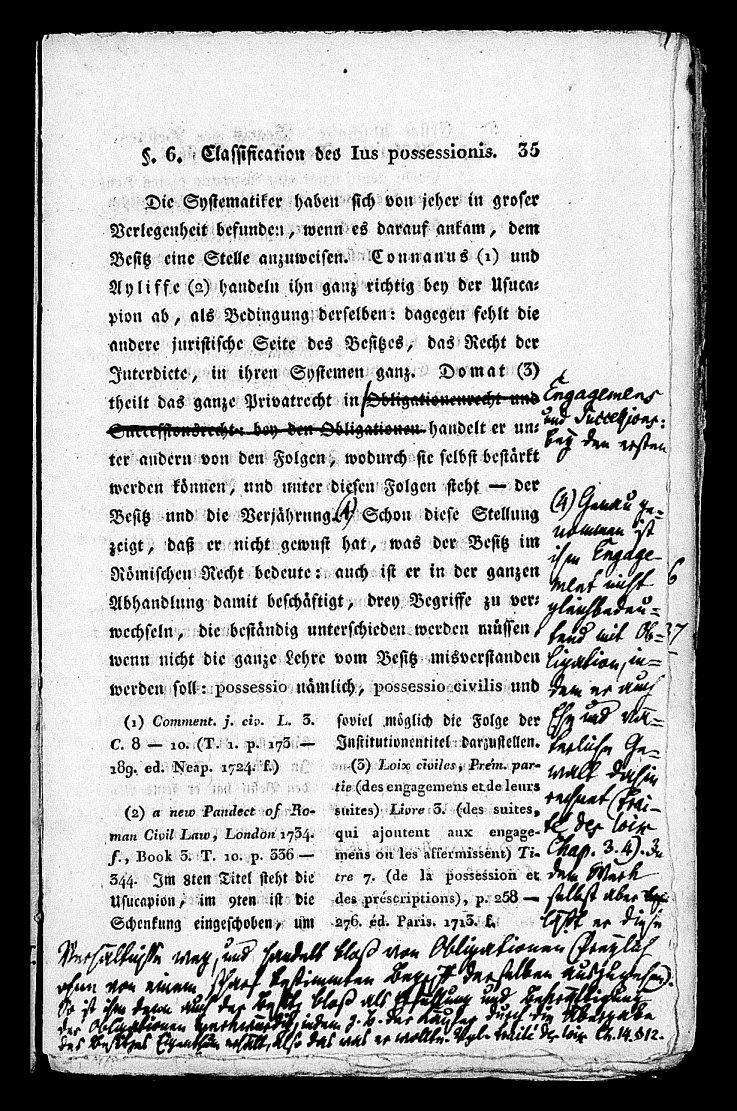 §. 6. Classification des Ius possessionis. 35
Die Systematiker haben sich von jeher in groser
Verlegenheit befunden, wenn es darauf ankam, dem
Besitz eine Stelle anzuweisen. Connanus (1) und
Ayliffe (2) handeln ihn ganz richtig bey der Usuca-
pion ab, als Bedingung derselben: dagegen fehlt die
andere juristische Seite des Besitzes, das Recht der
Interdicte, in ihren Systemen ganz. Domat (3)
theilt das ganze Privatrecht in Obligationenrecht und
Successionsrecht: bey den Obligationen handelt er un-
ter andern von den Folgen, wodurch sie selbst bestärkt
werden können, und unter diesen Folgen steht — der
Besitz und die Verjährung.(4) Schon diese Stellung
zeigt, daß er nicht gewust hat, was der Besitz im
Römischen Recht bedeute: auch ist er in der ganzen
Abhandlung damit beschäftigt, drey Begriffe zu ver-
wechseln, die beständig unterschieden werden müssen,
wenn nicht die ganze Lehre vom Besitz misverstanden
werden soll: possessio nämlich, possessio civilis und
(1) Comment. j. civ. L. 3.
C. 8 — 10. (T. 1. p. 173 —
189. ed. Neap. 1724. f.)
(2) a new Pandect of Ro-
man Civil Law, London 1734.
f., Book 3. T. 10. p. 336 —
344. Im 8ten Titel steht die
Usucapion, im 9ten ist die
Schenkung eingeschoben, um
soviel möglich die Folge der
Institutionentitel darzustellen.
(3) Loix civiles, Prém. par-
tie (des engagemens et de leurs
suites) Livre 3. (des suites,
qui ajoutent aux engage-
mens ou les affermissent) Ti-
tre 7. (de la possession et
des préscriptions), p. 258 —
276. éd. Paris. 1713. f.
Engagemens
und Successions:
bey den ersten
(4) Genau ge-
nommen ist
ihm Engage-
ment nicht
gleichbedeu-
tend mit Ob-
ligation, in-
dem er auch
Ehe und vä-
terliche Ge-
walt dahin
rechnet (trai-
té des loix
Chap. 3. 4). In
dem Werk
selbst aber
läßt er diese
Verhältnisse weg, und handelt blos von Obligationen (freylich
ohne von einem scharf bestimmten Begriff derselben auszugehen).
So ist ihm denn auch der Besitz blos als Erfüllung und Bekräftigung
der Obligationen merkwürdig, indem z. B. der Käufer durch die Übergabe
des Besitzes Eigenthum erhält, also das was er wollte. Vgl. traité des loix Ch. 14. § 12.
6
37